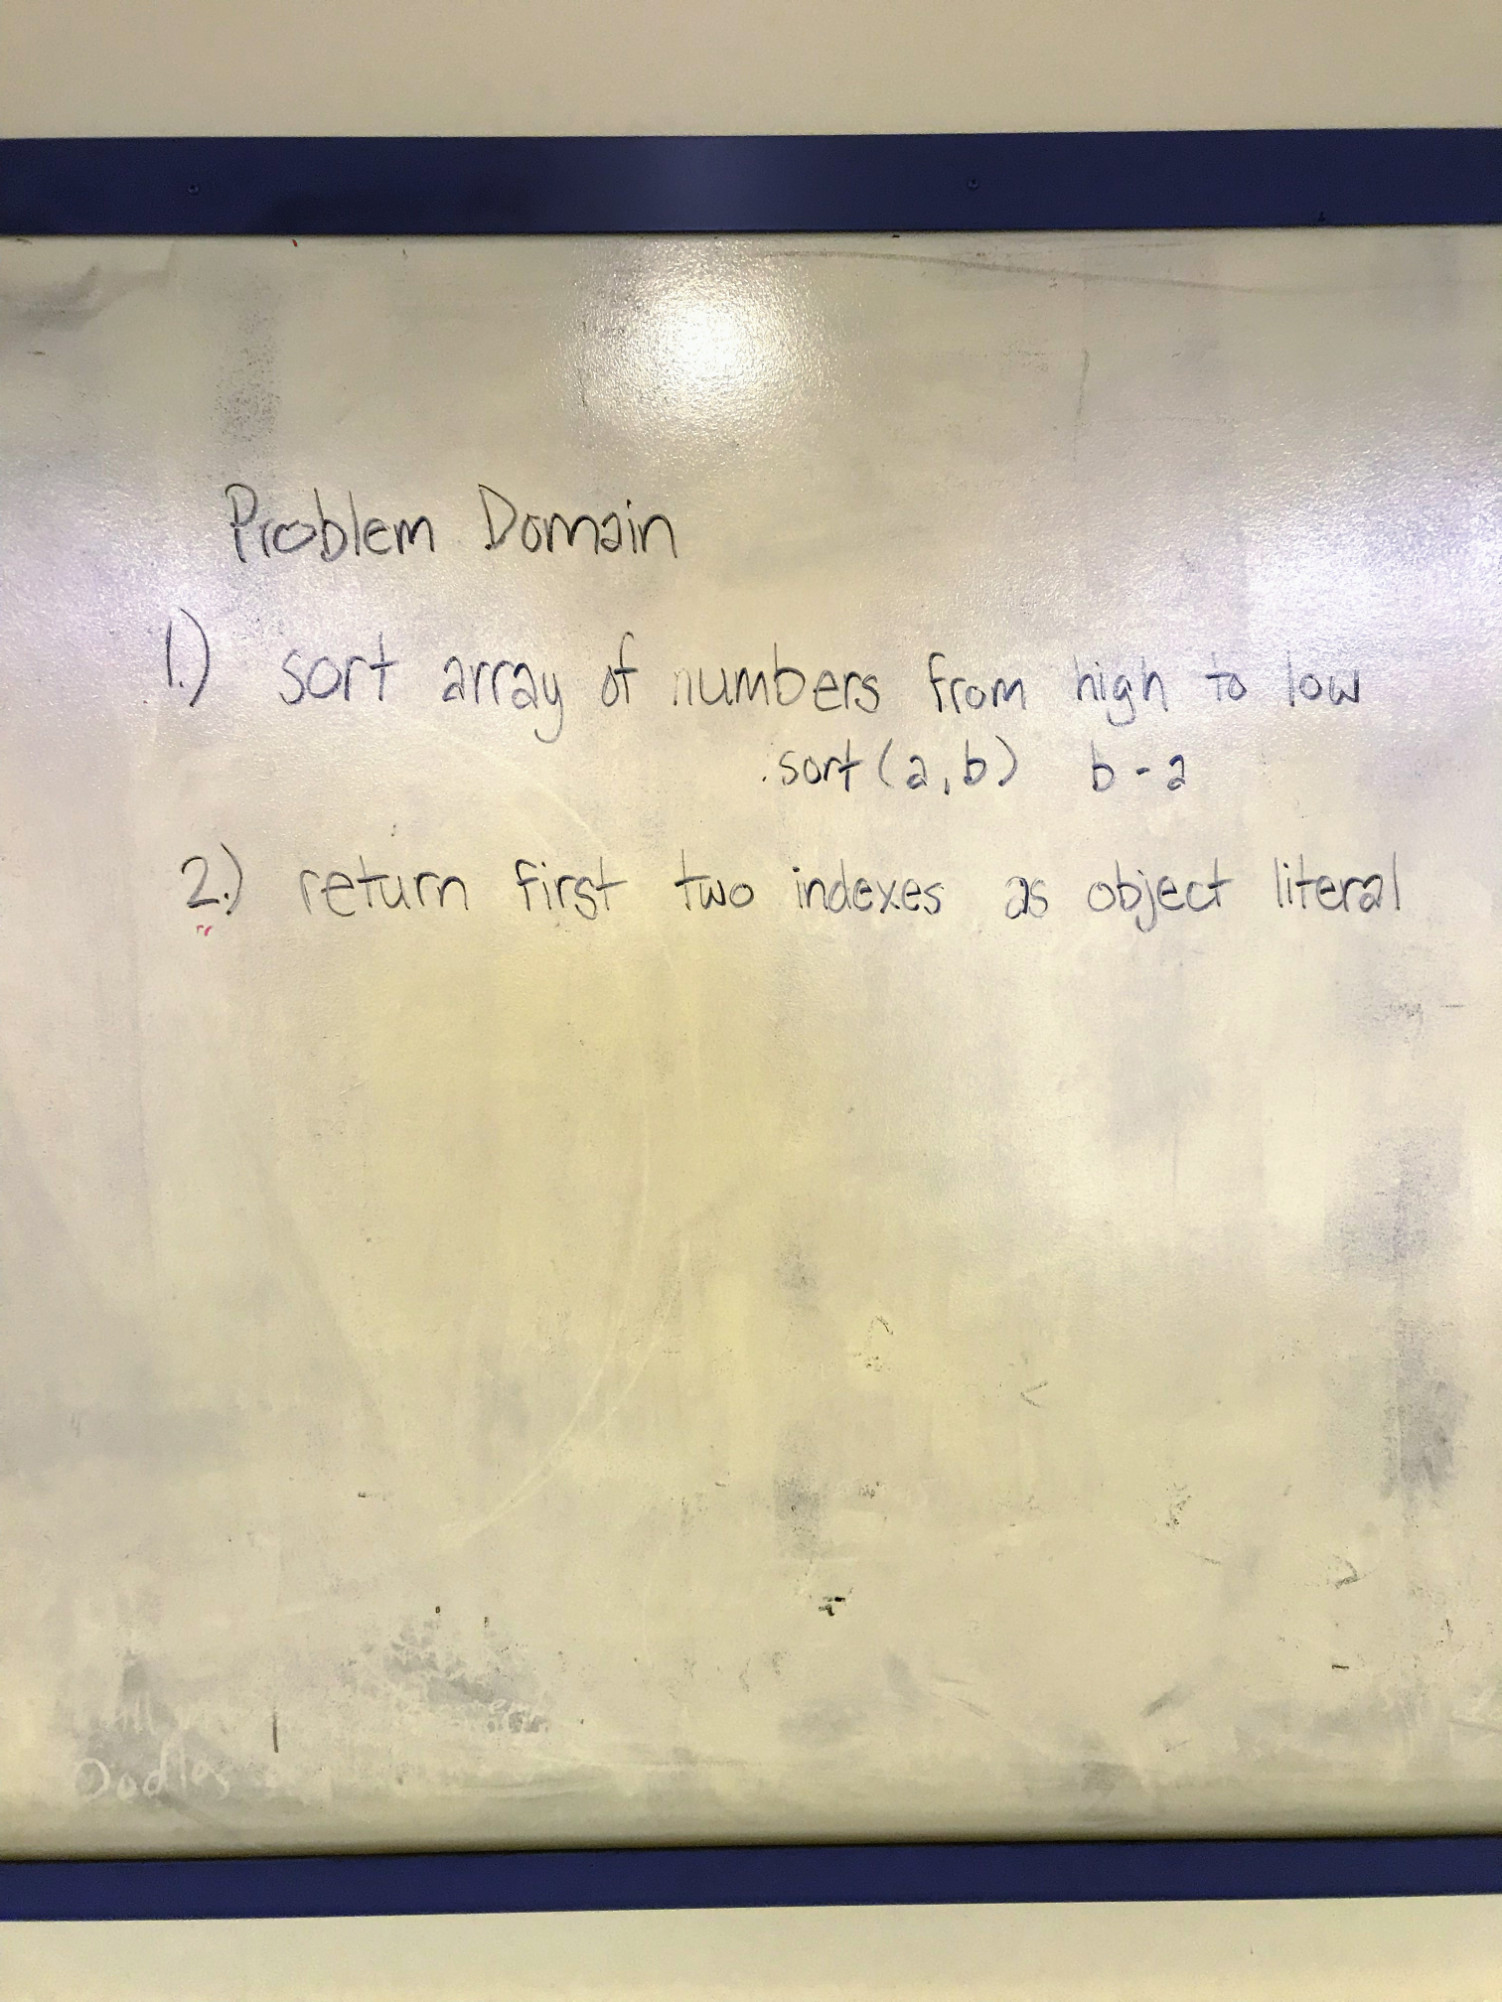 Problem Domain
1.) sort array of numbers from high to low
.sort(a,b) b-a
2.) return first two indexes as object literal